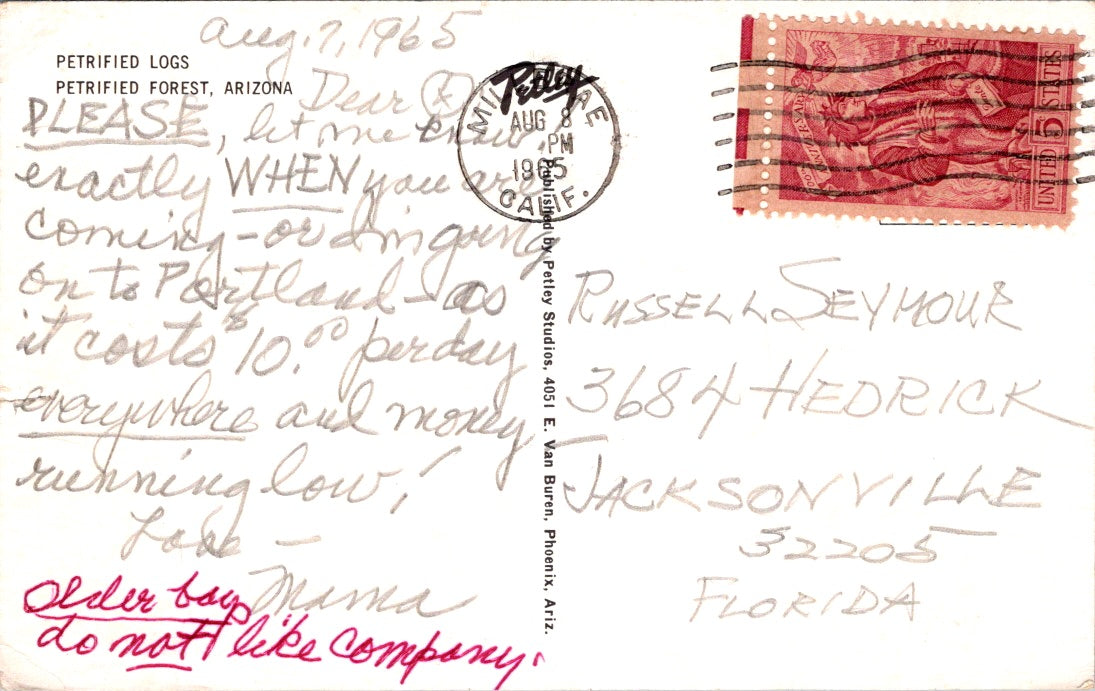 PETRIFIED LOGS
PETRIFIED FOREST, ARIZONA
Aug. 7, 1965
Dear
PLEASE, let me know
exactly WHEN you are
coming - or I'm going
on to Portland - as
it costs $10.00 per day
everywhere and money
running low!
Love -
Mama
Older boys
do not like company.
Petley
MILL VALLEY
AUG 8
PM
1965
CALIF.
Published by Petley Studios, 4051 E. Van Buren, Phoenix, Ariz.
UNITED STATES
5
RUSSELL SEYMOUR
3684 HEDRICK
JACKSONVILLE
32205
FLORIDA